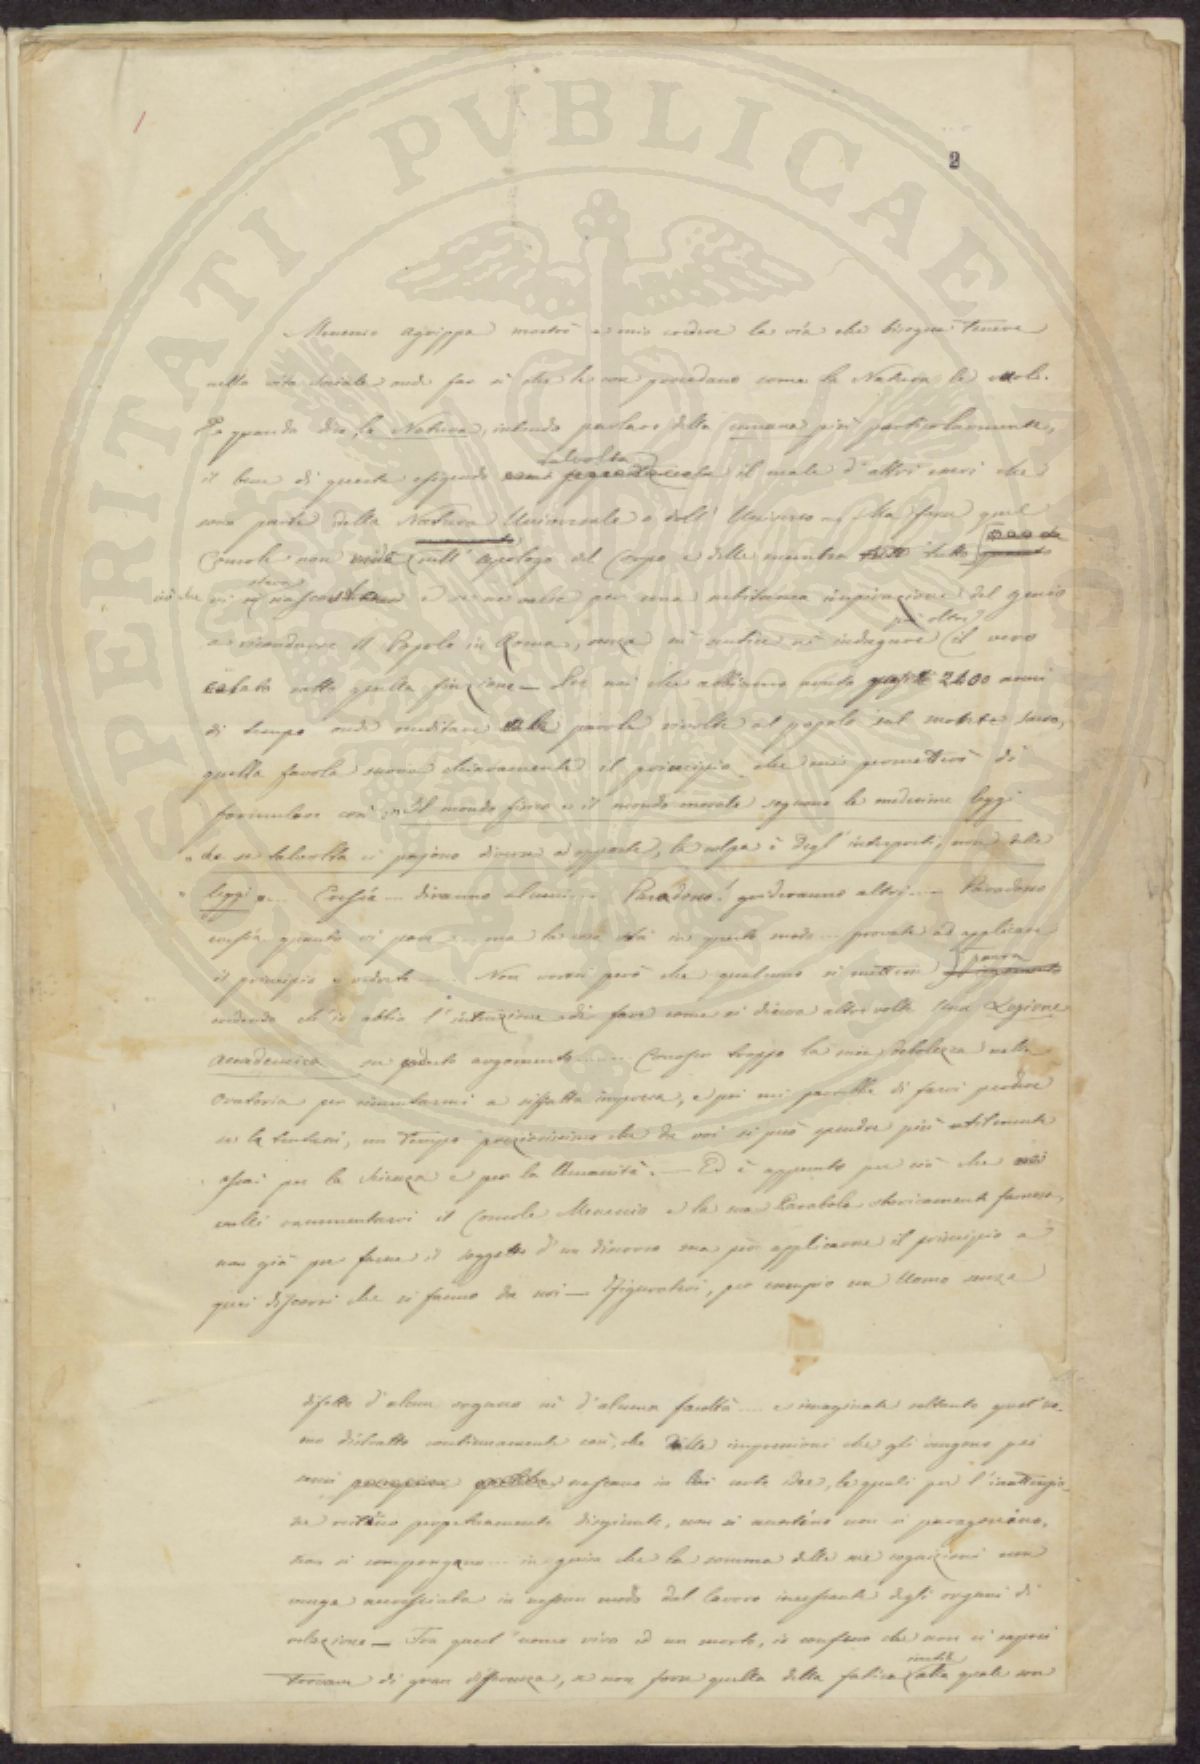 2
Menenio Agrippa mostrò a mio credere la via che bisogna tenere
nella vita sociale onde far sì che le cose procedano come la Natura le vuole.
E quando dico, la Natura, intendo parlare della umana più particolarmente,
talvolta
il bene di questa esigendo il male d'altri esseri che
sono parte della Natura Universale o dell'Universo — Ma forse quel
Console non vide coll'apologo del Corpo e delle membra tutto
stava
ciò che vi nascosto e se ne valse per una subitanea inspirazione del genio
più oltre
a ricondurre il Popolo in Roma, senza nè sentire nè indagare il vero
celato sotto quella finzione — Per noi che abbiamo avuto quasi 2400 anni
di tempo onde meditare sulle parole rivolte al popolo sul monte sacro,
quella favola suona chiaramente il principio che mi permetterò di
formulare così: "Il mondo fisico e il mondo morale seguono le medesime leggi
" che se talvolta ci pajono diverse od opposte, la colpa è degl'interpreti, non delle
" leggi "... Eresia — diranno alcuni... Paradosso! grideranno altri... Paradosso
eresia quanto vi pare... ma la cosa stà in questo modo... provate ad applicare
paura
il principio e vedrete..... Non vorrei però che qualcuno si mettesse
credendo ch'io abbia l'intenzione di fare come si diceva altre volte Una Lezione
accademica su questo argomento...... Conosco troppo la mia debolezza nella
Oratoria per cimentarmi a siffatta impresa, e poi mi parrebbe di farvi perdere
se la tentassi, un tempo preziosissimo che da voi si può spendere più utilmente
assai per la Scienza e per la Umanità. — Ed è appunto per ciò che
volli rammentarvi il Console Menenio e la sua Parabola storicamente famosa,
non già per farne il soggetto d'un discorso ma per applicarne il principio a
quei discorsi che si fanno da noi — Figuratevi, per esempio un Uomo senza
difetto d'alcun organo nè d'alcuna facoltà .... e imaginate soltanto quest'uo-
mo distratto continuamente così, che dalle impressioni che gli vengono pei
sensi nascano in lui certe idee, le quali per l'inattenzio-
ne restino perpetuamente disgiunte, non si non si paragonino,
non si compongano ... in guisa che la somma delle sue cognizioni non
venga accresciuta in nessun modo dal lavoro incessante degli organi di
relazione — Tra quest'uomo vivo ed un morto, io confesso che non ci saprei
inutile
trovare di gran differenza, se non forse quella della fatica alla quale son